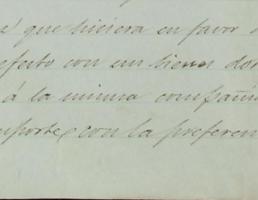 é que hiciera en favor
efecto con un sien
á la misma compañ
mporte, con la preferen